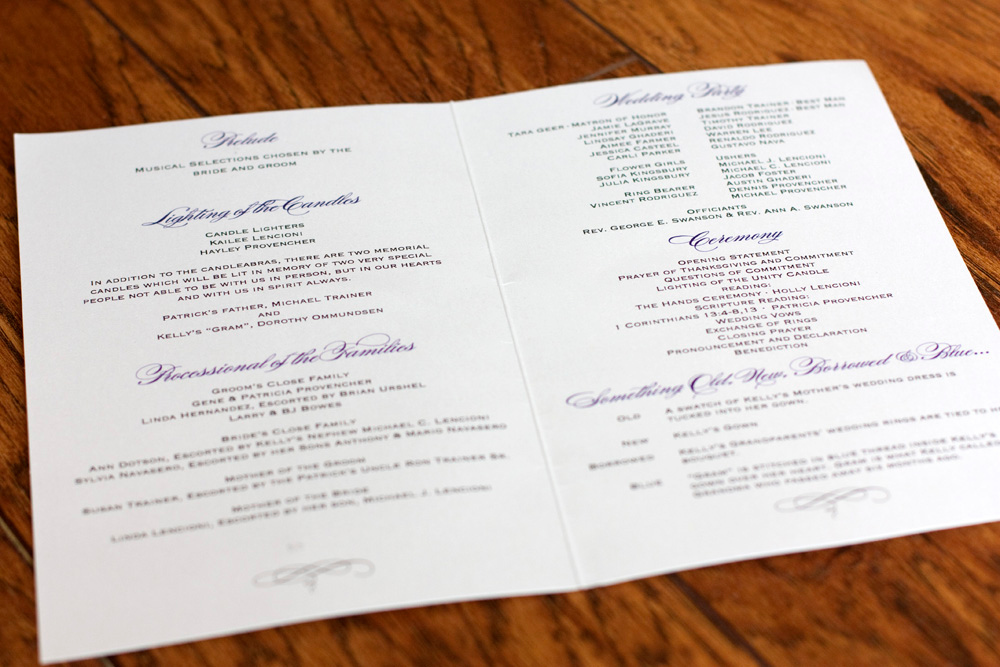 Prelude
Musical Selections chosen by the
bride and groom
Lighting of the Candles
Candle Lighters
Kailee Lencioni
Hayley Provencher
In addition to the candleabras, there are two memorial
candles which will be lit in memory of two very special
people not able to be with us in person, but in our hearts
and with us in spirit always.
Patrick's father, Michael Trainer
and
Kelly's "Gram", Dorothy Ommundsen
Processional of the Families
Groom's Close Family
Gene & Patricia Provencher
Linda Hernandez, Escorted by Brian Urshel
Larry & BJ Bowes
Bride's Close Family
Ann Dotson, Escorted by Kelly's Nephew Michael C. Lencioni
Sylvia Navasero, Escorted by her Sons Anthony & Mario Navasero
Mother of the Groom
Susan Trainer, Escorted by the Patrick's Uncle Ron Trainer Sr.
Mother of the Bride
Linda Lencioni, Escorted by her son, Michael J. Lencioni
Wedding Party
Tara Geer - Matron of Honor
Jamie LaGrave
Jennifer Murray
Lindsay Ghaderi
Aimee Farmer
Jessica Casteel
Carli Parker
Flower Girls
Sofia Kingsbury
Julia Kingsbury
Ring Bearer
Vincent Rodriguez
Brandon Trainer - Best Man
Jesus Rodriguez - Best Man
Timothy Trainer
David Rodriguez
Warren Lee
Renaldo Rodriguez
Gustavo Nava
Ushers
Michael J. Lencioni
Michael C. Lencioni
Jacob Foster
Austin Ghaderi
Dennis Provencher
Michael Provencher
Officiants
Rev. George E. Swanson & Rev. Ann A. Swanson
Ceremony
Opening Statement
Prayer of Thanksgiving and Commitment
Questions of Commitment
Lighting of the Unity Candle
Reading:
The Hands Ceremony - Holly Lencioni
Scripture Reading:
1 Corinthians 13:4-8,13 - Patricia Provencher
Wedding Vows
Exchange of Rings
Closing Prayer
Pronouncement and Declaration
Benediction
Something Old, New, Borrowed & Blue...
Old A swatch of Kelly's Mother's wedding dress is
tucked into her gown.
New Kelly's Gown
Borrowed Kelly's Grandparents' wedding rings are tied to h
bouquet.
Blue "Gram" is stitched in blue thread inside Kelly's
gown over her heart. Gram is what Kelly called
who passed away six months ago.